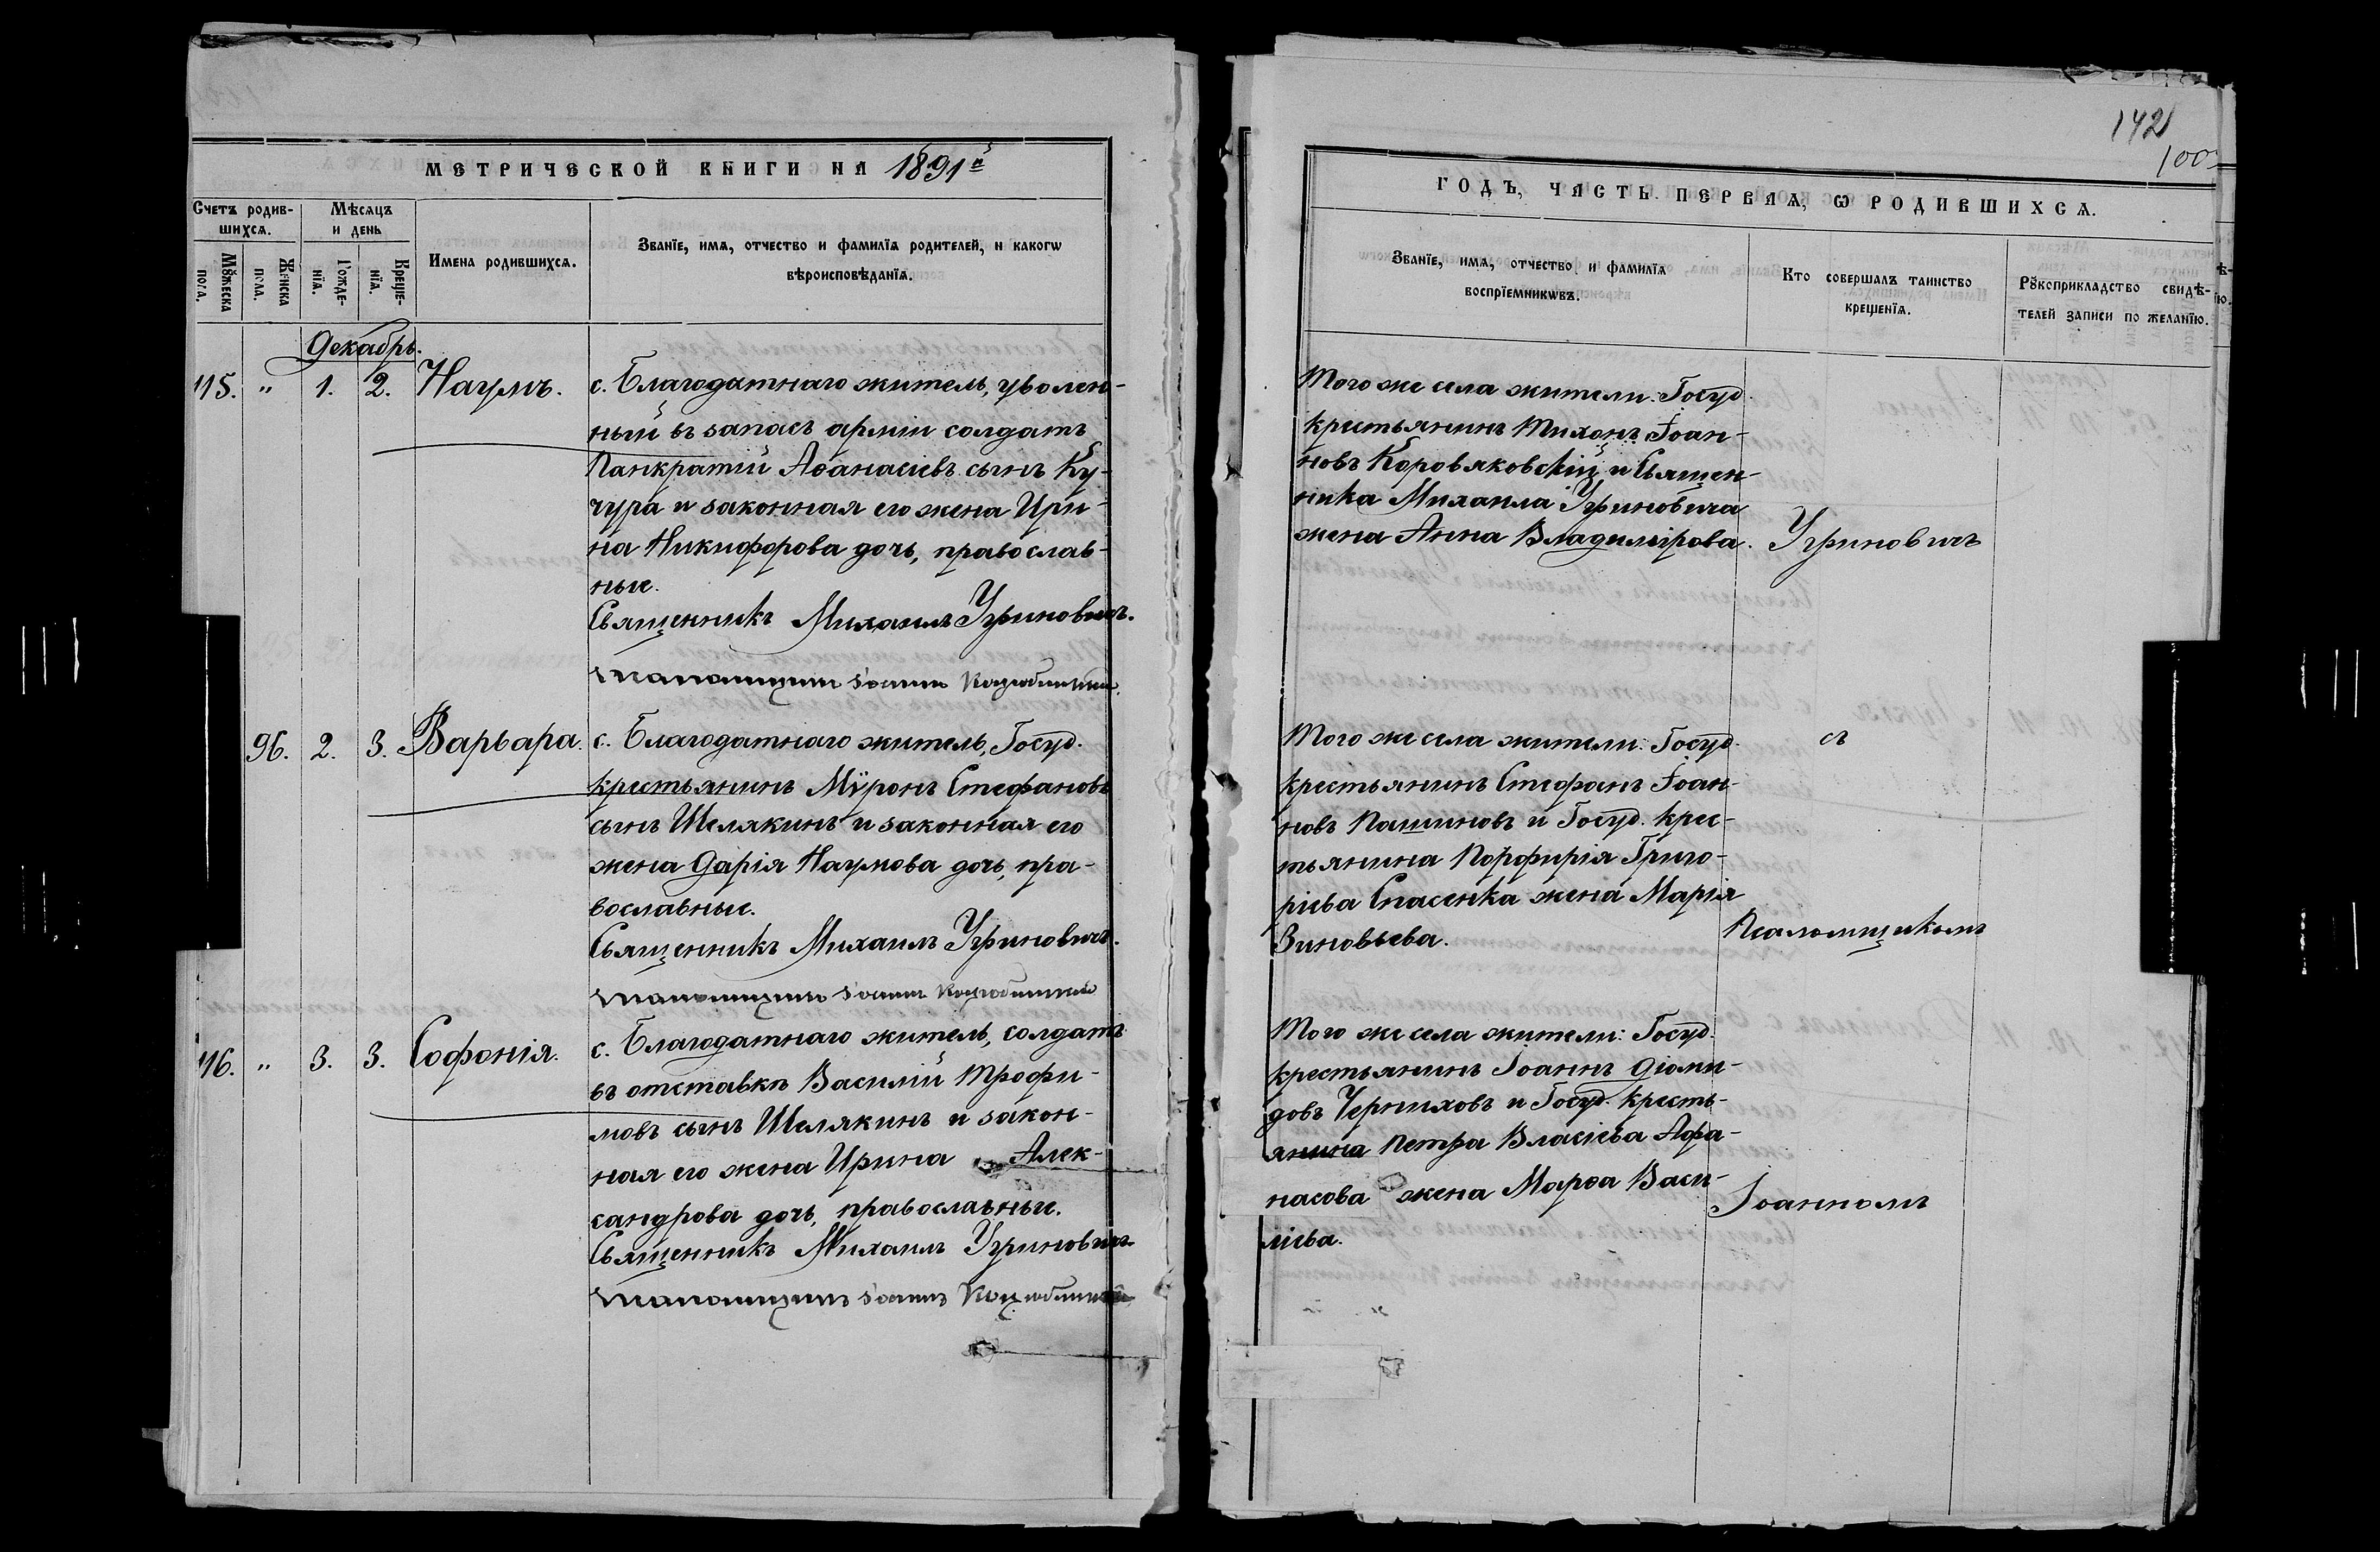 МЕТРИЧЕСКОЙ КНИГИ НА 1891й
Счетъ родившихся.
Мѣсяцъ и день
Мꙋжеска пола.
Женска пола.
Рожденїя.
Крещенїя.
Имена родившихся.
Званїе, имя, отчество и фамилїя родителей, и какогѡ
вѣроисповѣданїя.
Декабрь.
115. " 1. 2. Наумъ. с. Благодатнаго житель, уволен-
ный въ запасъ арміи солдатъ
Панкратій Аѳанасіевъ сынъ Ку-
чура и законная его жена Ири-
на Никифорова дочь, православ-
ные.
Священникъ Михаилъ Угриновичъ.
Псаломщикъ Іоаннъ
96. 2. 3. Варвара. с. Благодатнаго житель, Госуд.
крестьянинъ Мѵронъ Стефановъ
сынъ Шелякинъ и законная его
жена Дарія Наумова дочь, пра-
вославные.
Священникъ Михаилъ Угриновичъ.
Псаломщикъ Іоаннъ
116. " 3. 3. Софонія. с. Благодатнаго житель, солдатъ
въ отставкѣ Василій Трофи-
мовъ сынъ Шелякинъ и закон-
ная его жена Ирина Алек-
сандрова дочь, православные.
Священникъ Михаилъ Угриновичъ.
Псаломщикъ Іоаннъ
142
100
ГОДЪ, ЧАСТЬ ПЕРВАЯ, Ѡ РОДИВШИХСЯ.
Званїе, имя, отчество и фамилїя
воспрїемникѡвъ.
Кто совершалъ таинство
крещенїя.
Рꙋкоприкладство свидѣ-
телей записи по желанїю.
Того же села жители: Госуд.
крестьянинъ Тихонъ Іоан-
новъ Коровяковскій и Священ-
ника Михаила Угриновича
жена Анна Владимірова. Угриновичъ
Того же села жители: Госуд. съ
крестьянинъ Стефанъ Іоан-
новъ Пашиновъ и Госуд. крес-
тьянина Порфирія Григо-
ріева Спасенка жена Марія
Зиновьева. Псаломщикомъ
Того же села жители: Госуд.
крестьянинъ Іоаннъ Діоми-
довъ Черниховъ и Госуд. кресть-
янина Петра Власіева Афа-
насова жена Марѳа Васи- Іоанномъ
ліева.